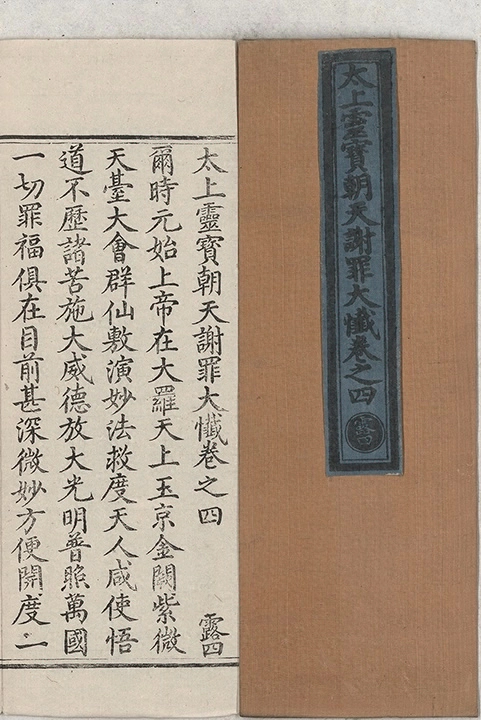 太上靈寶朝天謝罪大懺卷之四
露四
太上靈寶朝天謝罪大懺卷之四 露四
爾時元始上帝在大羅天上玉京金闕紫微
天臺大會群仙敷演妙法救度天人咸使悟
道不歷諸苦施大威德放大光明普照萬國
一切罪福俱在目前甚深微妙方便開度二